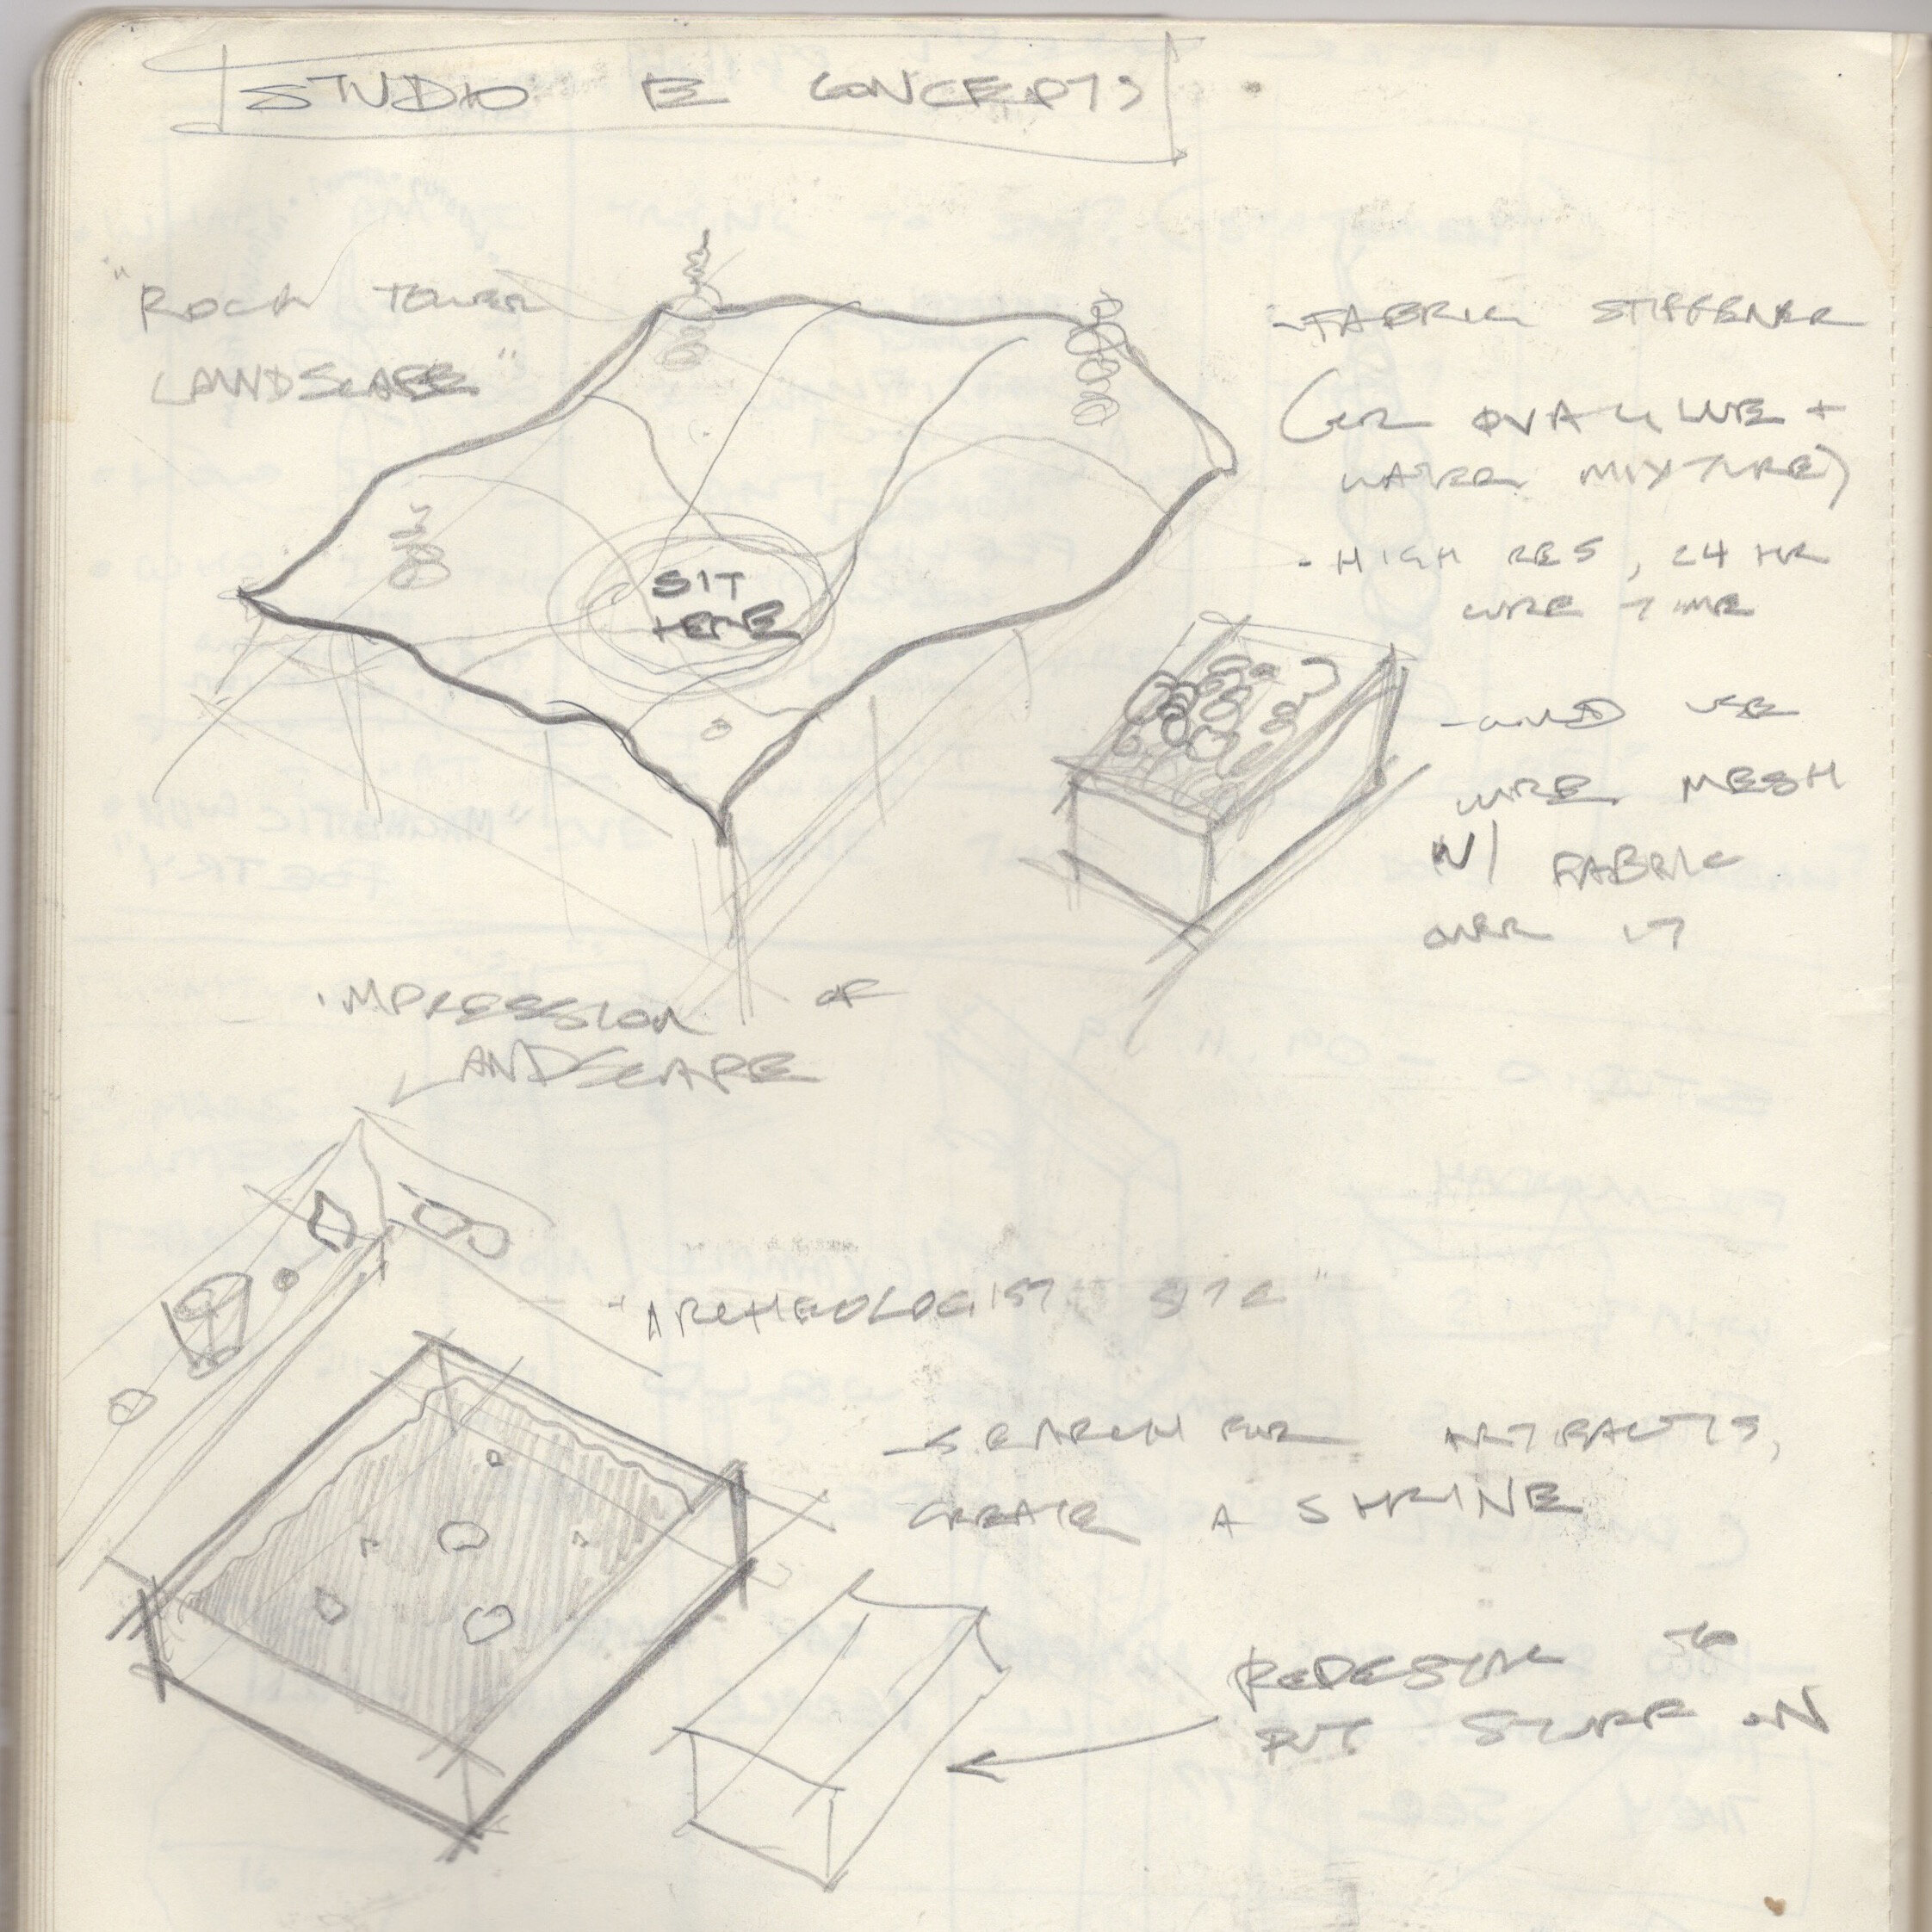 STUDIO E CONCEPTS
"ROCK TOWER
LANDSCAPE"
SIT
HERE
- FABRIC STIFFENER
(OR PVA GLUE +
WATER MIXTURE)
- HIGH RES, 24 HR
CURE TIME
- COULD USE
WIRE MESH
W/ FABRIC
OVER IT
IMPRESSION OF
LANDSCAPE
"ARCHEOLOGIST SITE"
- SEARCH FOR ARTIFACTS,
CREATE A SHRINE
REDESIGN TO
PUT STUFF ON